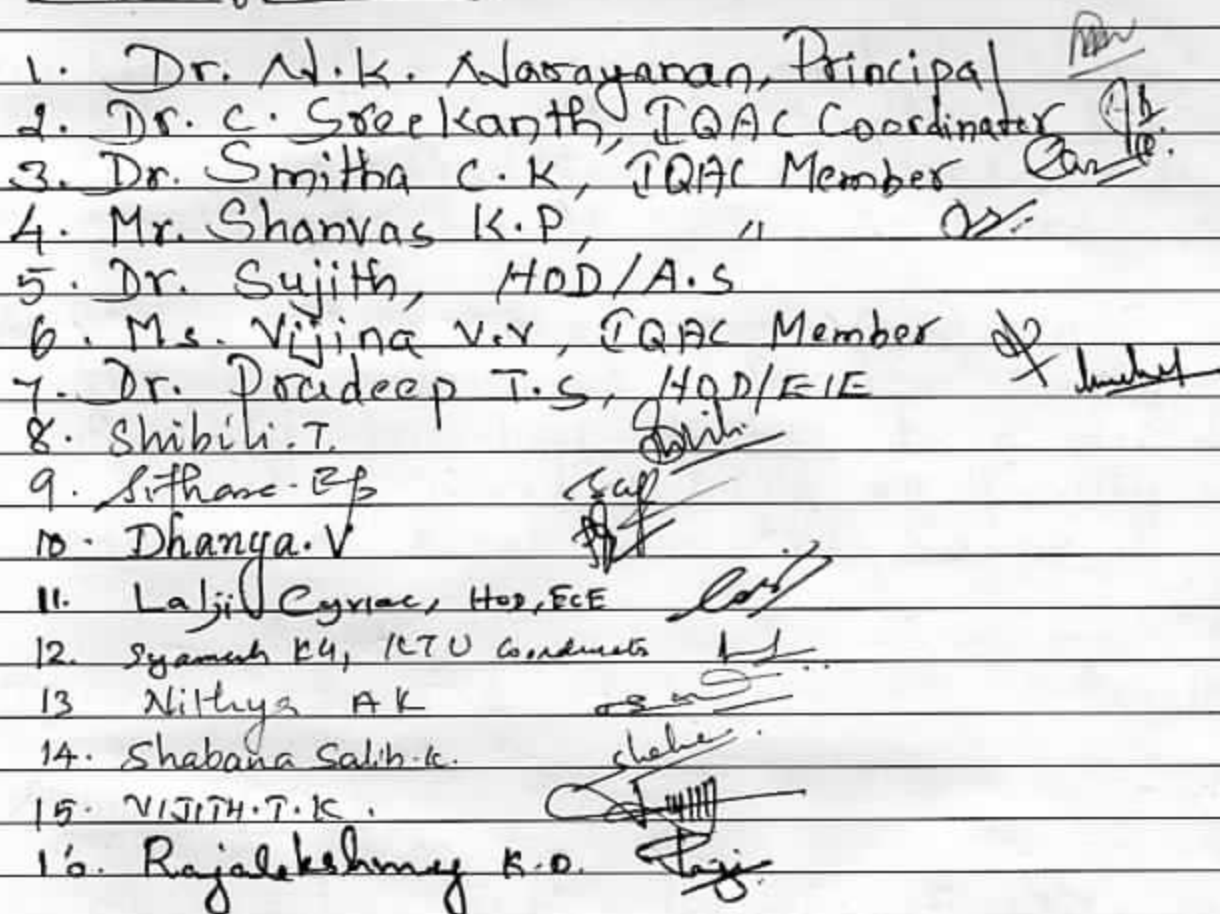 1. Dr. N.K. Narayanan, Principal
2. Dr. C. Sreekanth, IQAC Coordinator
3. Dr. Smitha C.K, IQAC Member
4. Mr. Shanvas K.P, "
5. Dr. Sujith, HOD/A.S
6. Ms. Vijina V.V, IQAC Member
7. Dr. Pradeep T.S, HOD/EIE
8. Shibili.T. Shibili
9. Sithara
10. Dhanya.V
11. Lalji Cyriac, HOD, ECE
12. Syamesh KG, KTU Coordinator
13 Nithya AK
14. Shabana Salih.K.
15. VIJITH.T.K.
16. Rajalekshmy K.D. Raji